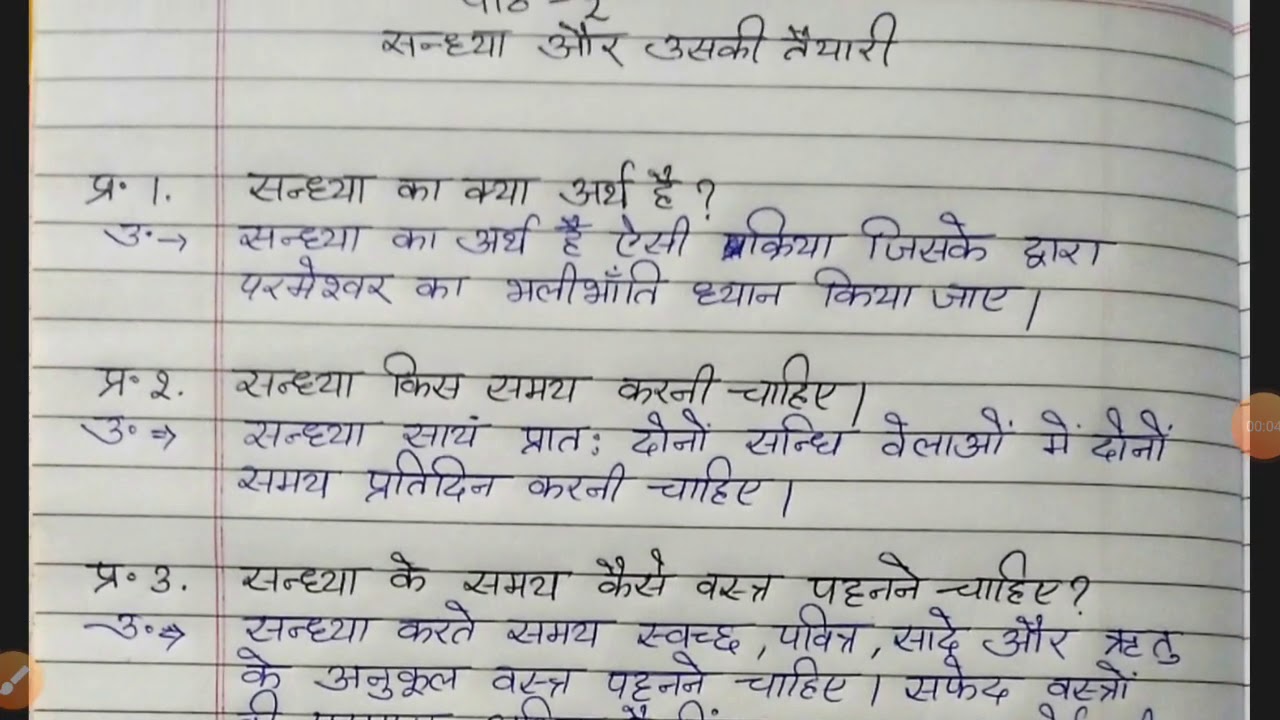 पाठ - २
सन्ध्या और उसकी तैयारी
प्र॰ १. सन्ध्या का क्या अर्थ है ?
उ॰→ सन्ध्या का अर्थ है ऐसी क्रिया जिसके द्वारा
परमेश्वर का भलीभाँति ध्यान किया जाए ।
प्र॰ २. सन्ध्या किस समय करनी चाहिए ।
उ॰⇒ सन्ध्या सायं प्रात: दोनों सन्धि वेलाओं में दोनों
समय प्रतिदिन करनी चाहिए ।
प्र॰ ३. सन्ध्या के समय कैसे वस्त्र पहनने चाहिए ?
उ॰⇒ सन्ध्या करते समय स्वच्छ , पवित्र , सादे और ऋतु
के अनुकूल वस्त्र पहनने चाहिए । सफेद वस्त्रों
00:04